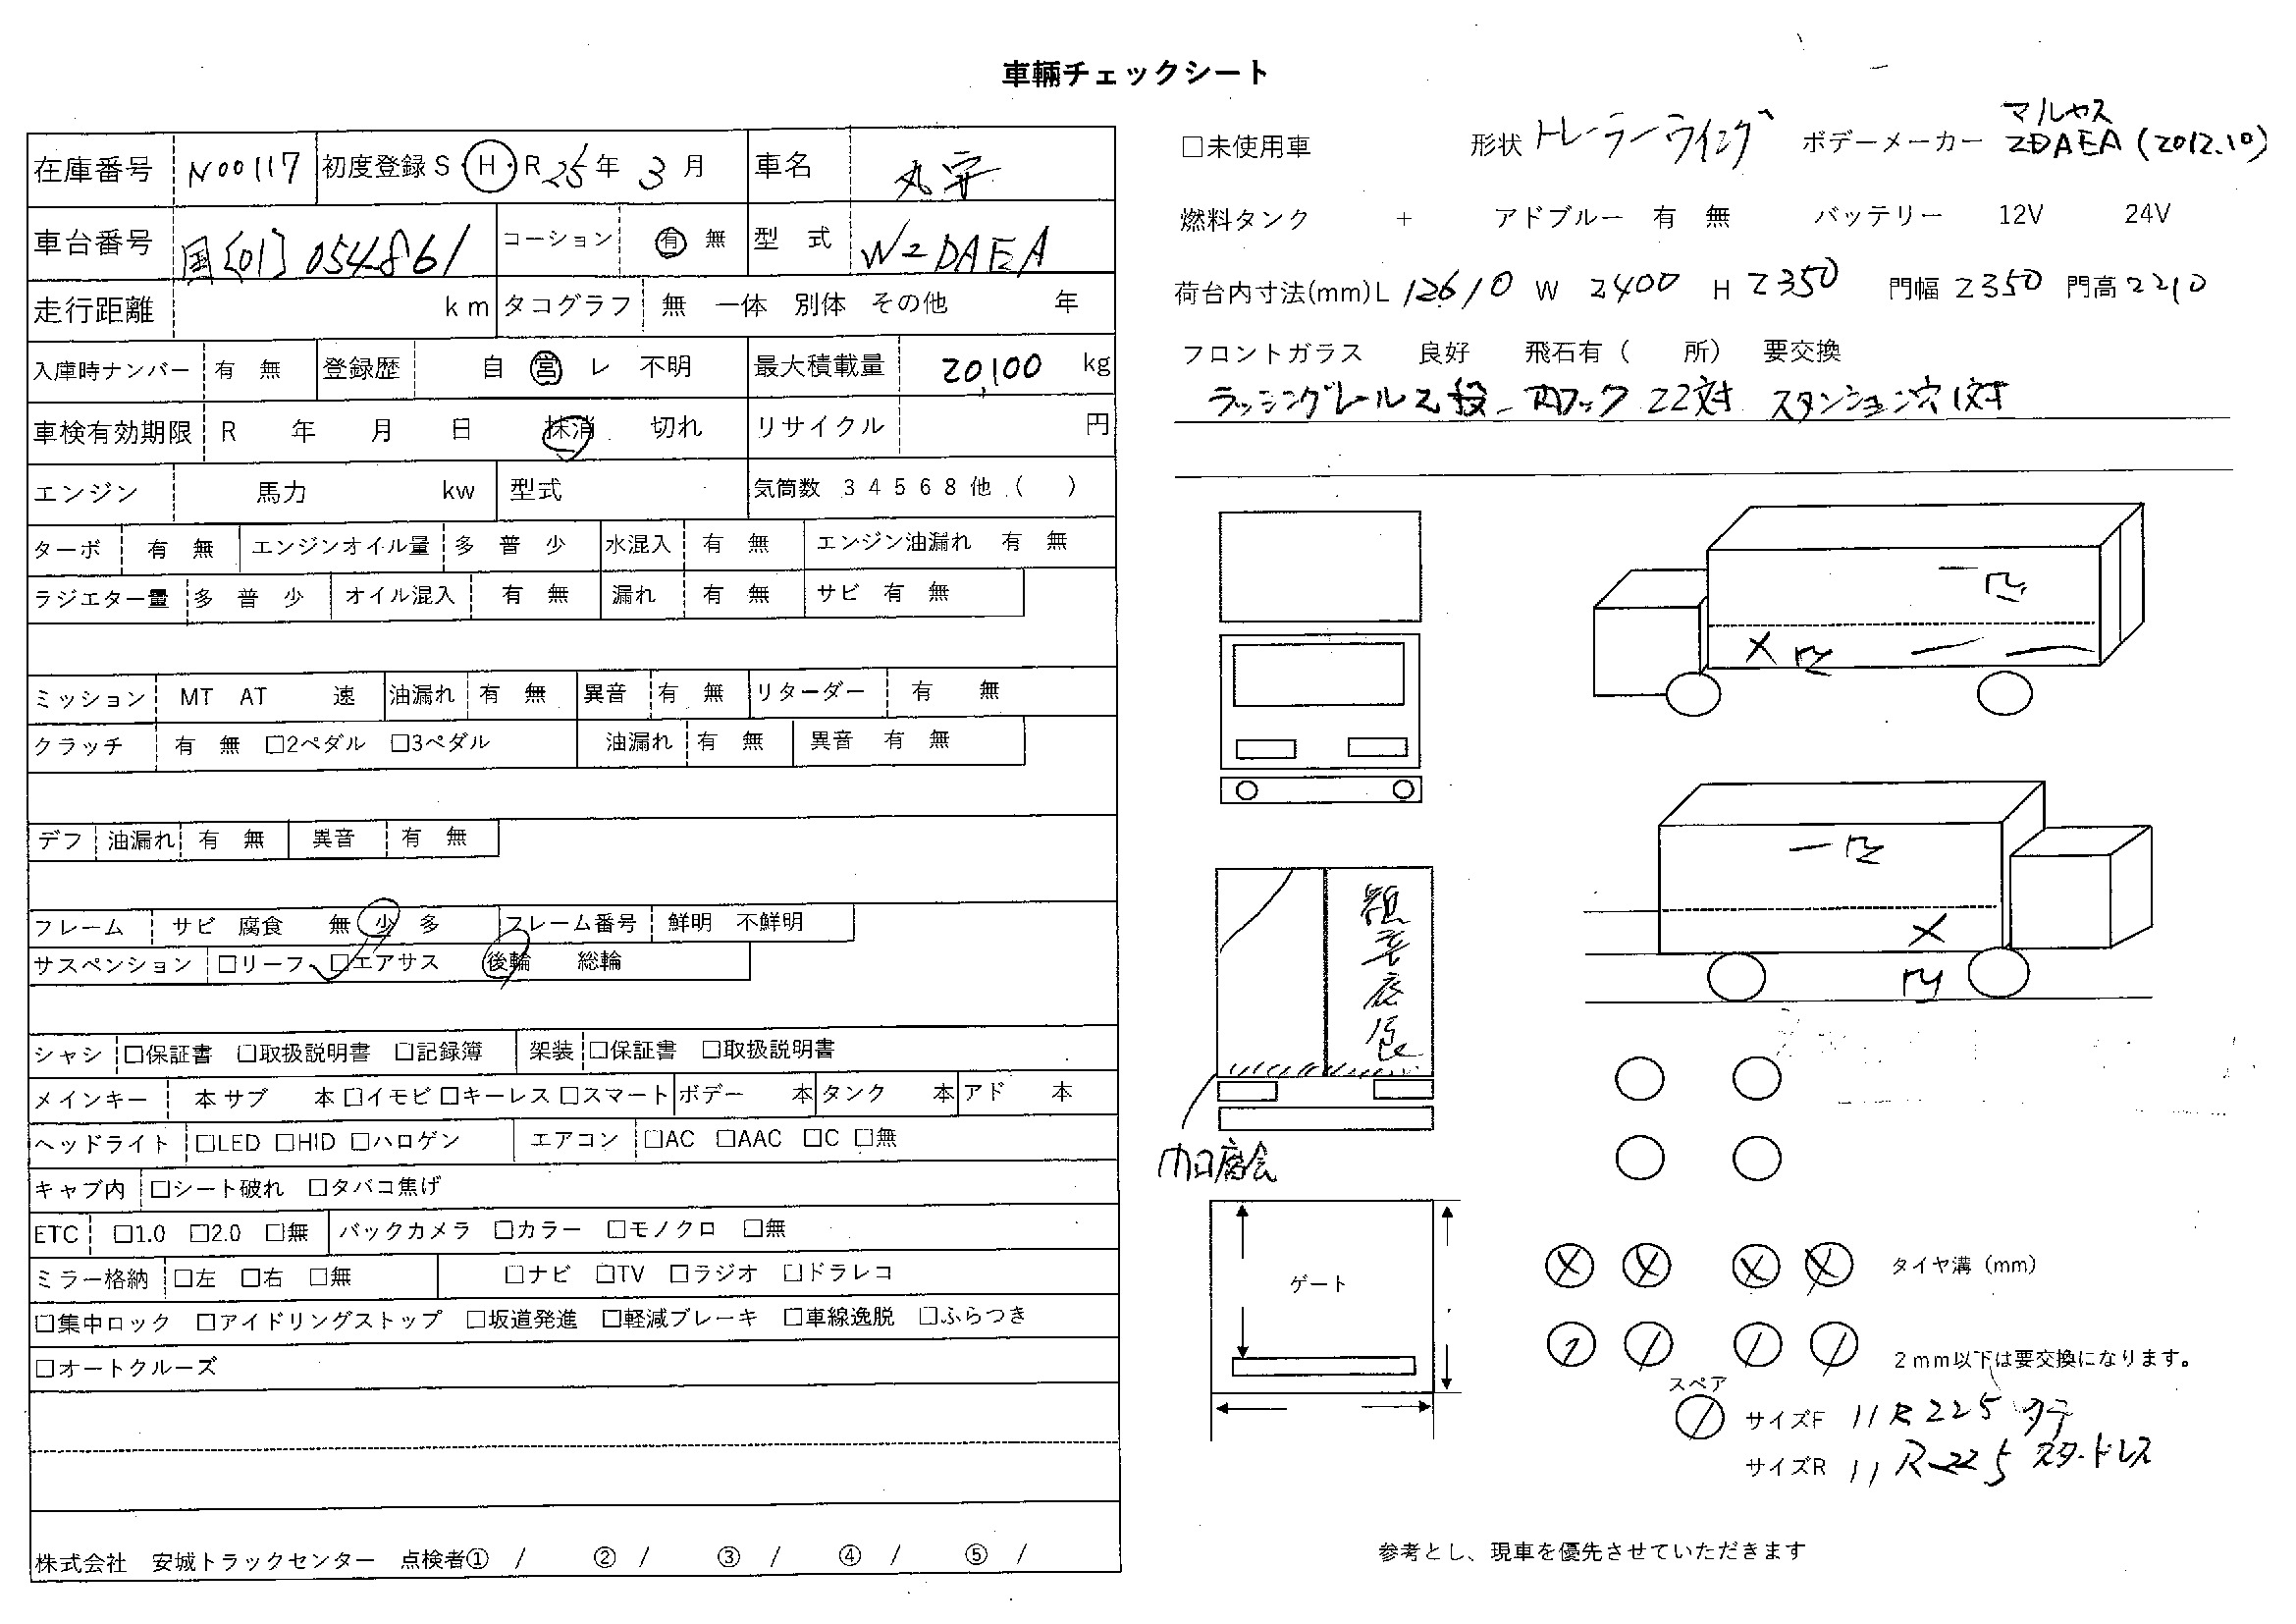 車輛チェックシート
在庫番号 N00117 初度登録 S・H・R 25年 3月 車名
車台番号 国[01]054861 コーション 有 無 型 式
走行距離 km タコグラフ 無 一体 別体 その他 年
入庫時ナンバー 有 無 登録歴 自 営 レ 不明 最大積載量 20,100 kg
車検有効期限 R 年 月 日 抹消 切れ リサイクル 円
エンジン 馬力 kw 型式 気筒数 3 4 5 6 8 他 ( )
ターボ 有 無 エンジンオイル量 多 普 少 水混入 有 無 エンジン油漏れ 有 無
ラジエター量 多 普 少 オイル混入 有 無 漏れ 有 無 サビ 有 無
ミッション MT AT 速 油漏れ 有 無 異音 有 無 リターダー 有 無
クラッチ 有 無 □2ペダル □3ペダル 油漏れ 有 無 異音 有 無
デフ 油漏れ 有 無 異音 有 無
フレーム サビ 腐食 無 少 多 フレーム番号 鮮明 不鮮明
サスペンション □リーフ □エアサス 後輪 総輪
シャシ □保証書 □取扱説明書 □記録簿 架装 □保証書 □取扱説明書
メインキー 本 サブ 本 □イモビ □キーレス □スマート ボデー 本 タンク 本 アド 本
ヘッドライト □LED □HID □ハロゲン エアコン □AC □AAC □C □無
キャブ内 □シート破れ □タバコ焦げ
ETC □1.0 □2.0 □無 バックカメラ □カラー □モノクロ □無
ミラー格納 □左 □右 □無 □ナビ □TV □ラジオ □ドラレコ
□集中ロック □アイドリングストップ □坂道発進 □軽減ブレーキ □車線逸脱 □ふらつき
□オートクルーズ
株式会社 安城トラックセンター 点検者① / ② / ③ / ④ / ⑤ /
□未使用車 形状 トレーラーウイング ボデーメーカー マルヤス
ZDAEA (2012.10)
燃料タンク + アドブルー 有 無 バッテリー 12V 24V
荷台内寸法(mm)L 12610 W 2400 H 2350 門幅 2350 門高 2210
フロントガラス 良好 飛石有 ( 所) 要交換
ラッシングレール2段 内フック 22対 スタンション穴1対
ゲート
タイヤ溝 (mm)
2mm以下は要交換になります。
スペア
サイズF 11R225
サイズR 11R225 スタッドレス
参考とし、現車を優先させていただきます